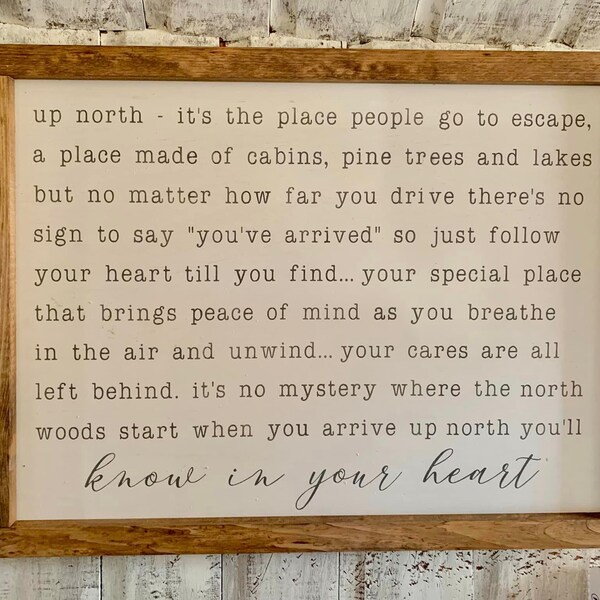 up north - it's the place people go to escape,
a place made of cabins, pine trees and lakes
but no matter how far you drive there's no
sign to say "you've arrived" so just follow
your heart till you find... your special place
that brings peace of mind as you breathe
in the air and unwind... your cares are all
left behind. it's no mystery where the north
woods start when you arrive up north you'll
know in your heart